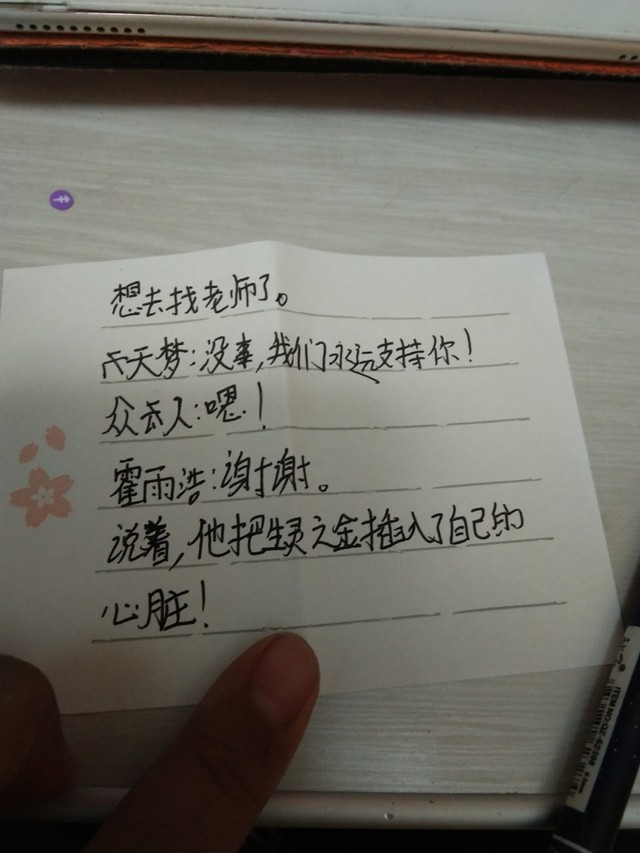 想去找老师了。
天梦:没事,我们永远支持你!
众人:嗯!
霍雨浩:谢谢。
说着,他把生灵之金插入了自己的
心脏!